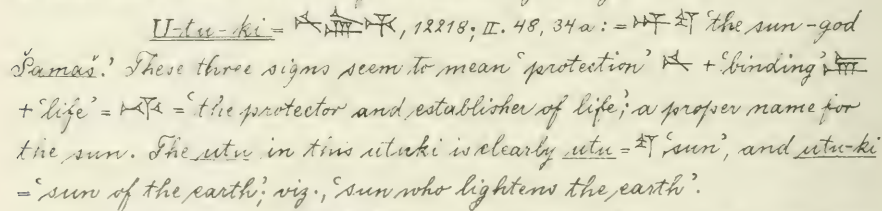 U-tu-ki = , 12218; II. 48, 34a: = 'the sun-god
Šamaš.' These three signs seem to mean 'protection' + 'binding'
+ 'life' = = 'the protector and establisher of life'; a proper name for
the sun. The utu in this utuki is clearly utu = 'sun', and utu-ki
= 'sun of the earth'; viz., 'sun who lightens the earth'.